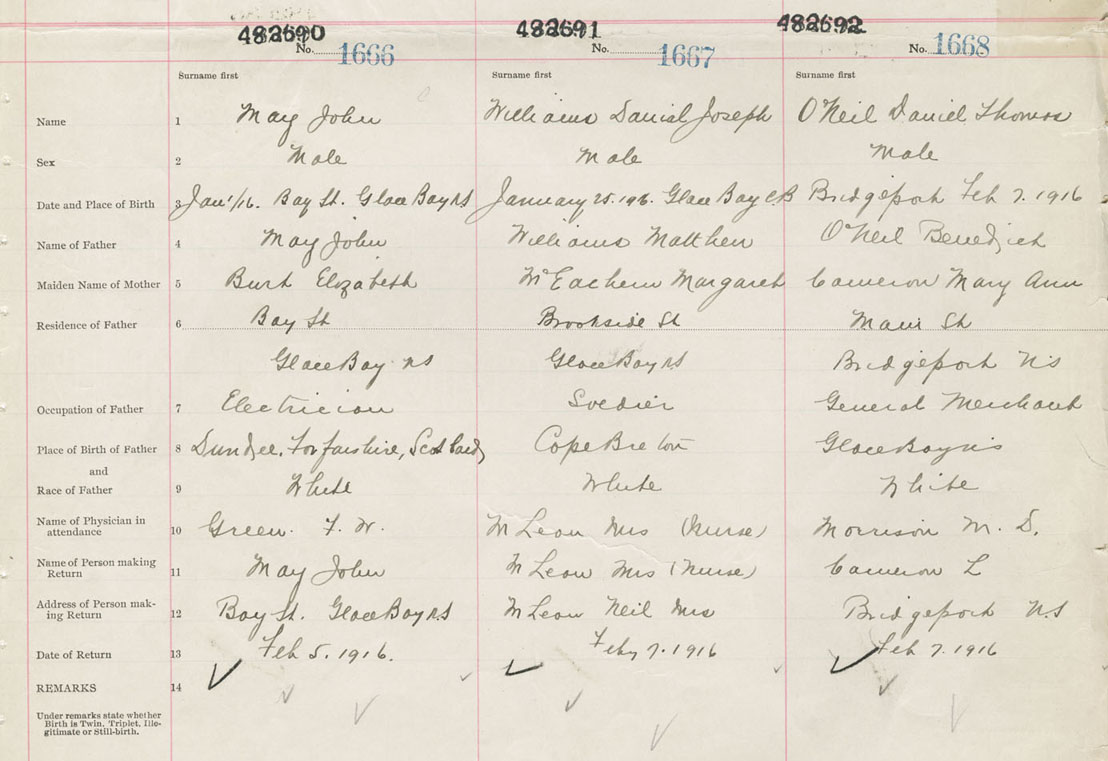 482690 482691 482692
No. 1666 No. 1667 No. 1668
Surname first Surname first Surname first
Name 1 May John Williams Daniel Joseph O'Neil Daniel Thomas
Sex 2 Male Male Male
Date and Place of Birth 3 Jan 1/16. Bay St. Glace Bay NS January 25. 1916. Glace Bay C.B Bridgeport Feb 7. 1916
Name of Father 4 May John Williams Matthew O'Neil Benedict
Maiden Name of Mother 5 Burt Elizabeth McEachern Margaret Cameron Mary Ann
Residence of Father 6 Bay St Brookside St Main St
Glace Bay NS Glace Bay NS Bridgeport NS
Occupation of Father 7 Electrician Soldier General Merchant
Place of Birth of Father 8 Dundee, Forfarshire, Scotland Cape Breton Glace Bay NS
and
Race of Father 9 White White White
Name of Physician in
attendance 10 Green. F. W. McLean Mrs (Nurse) Morrison M. D.
Name of Person making
Return 11 May John McLean Mrs (Nurse) Cameron L
Address of Person mak-
ing Return 12 Bay St. Glace Bay N.S McLean Neil Mrs Bridgeport N.S
Date of Return 13 Feb 5. 1916. Feby 7. 1916 Feb 7. 1916
REMARKS 14
Under remarks state whether
Birth is Twin, Triplet, Ille-
gitimate or Still-birth.